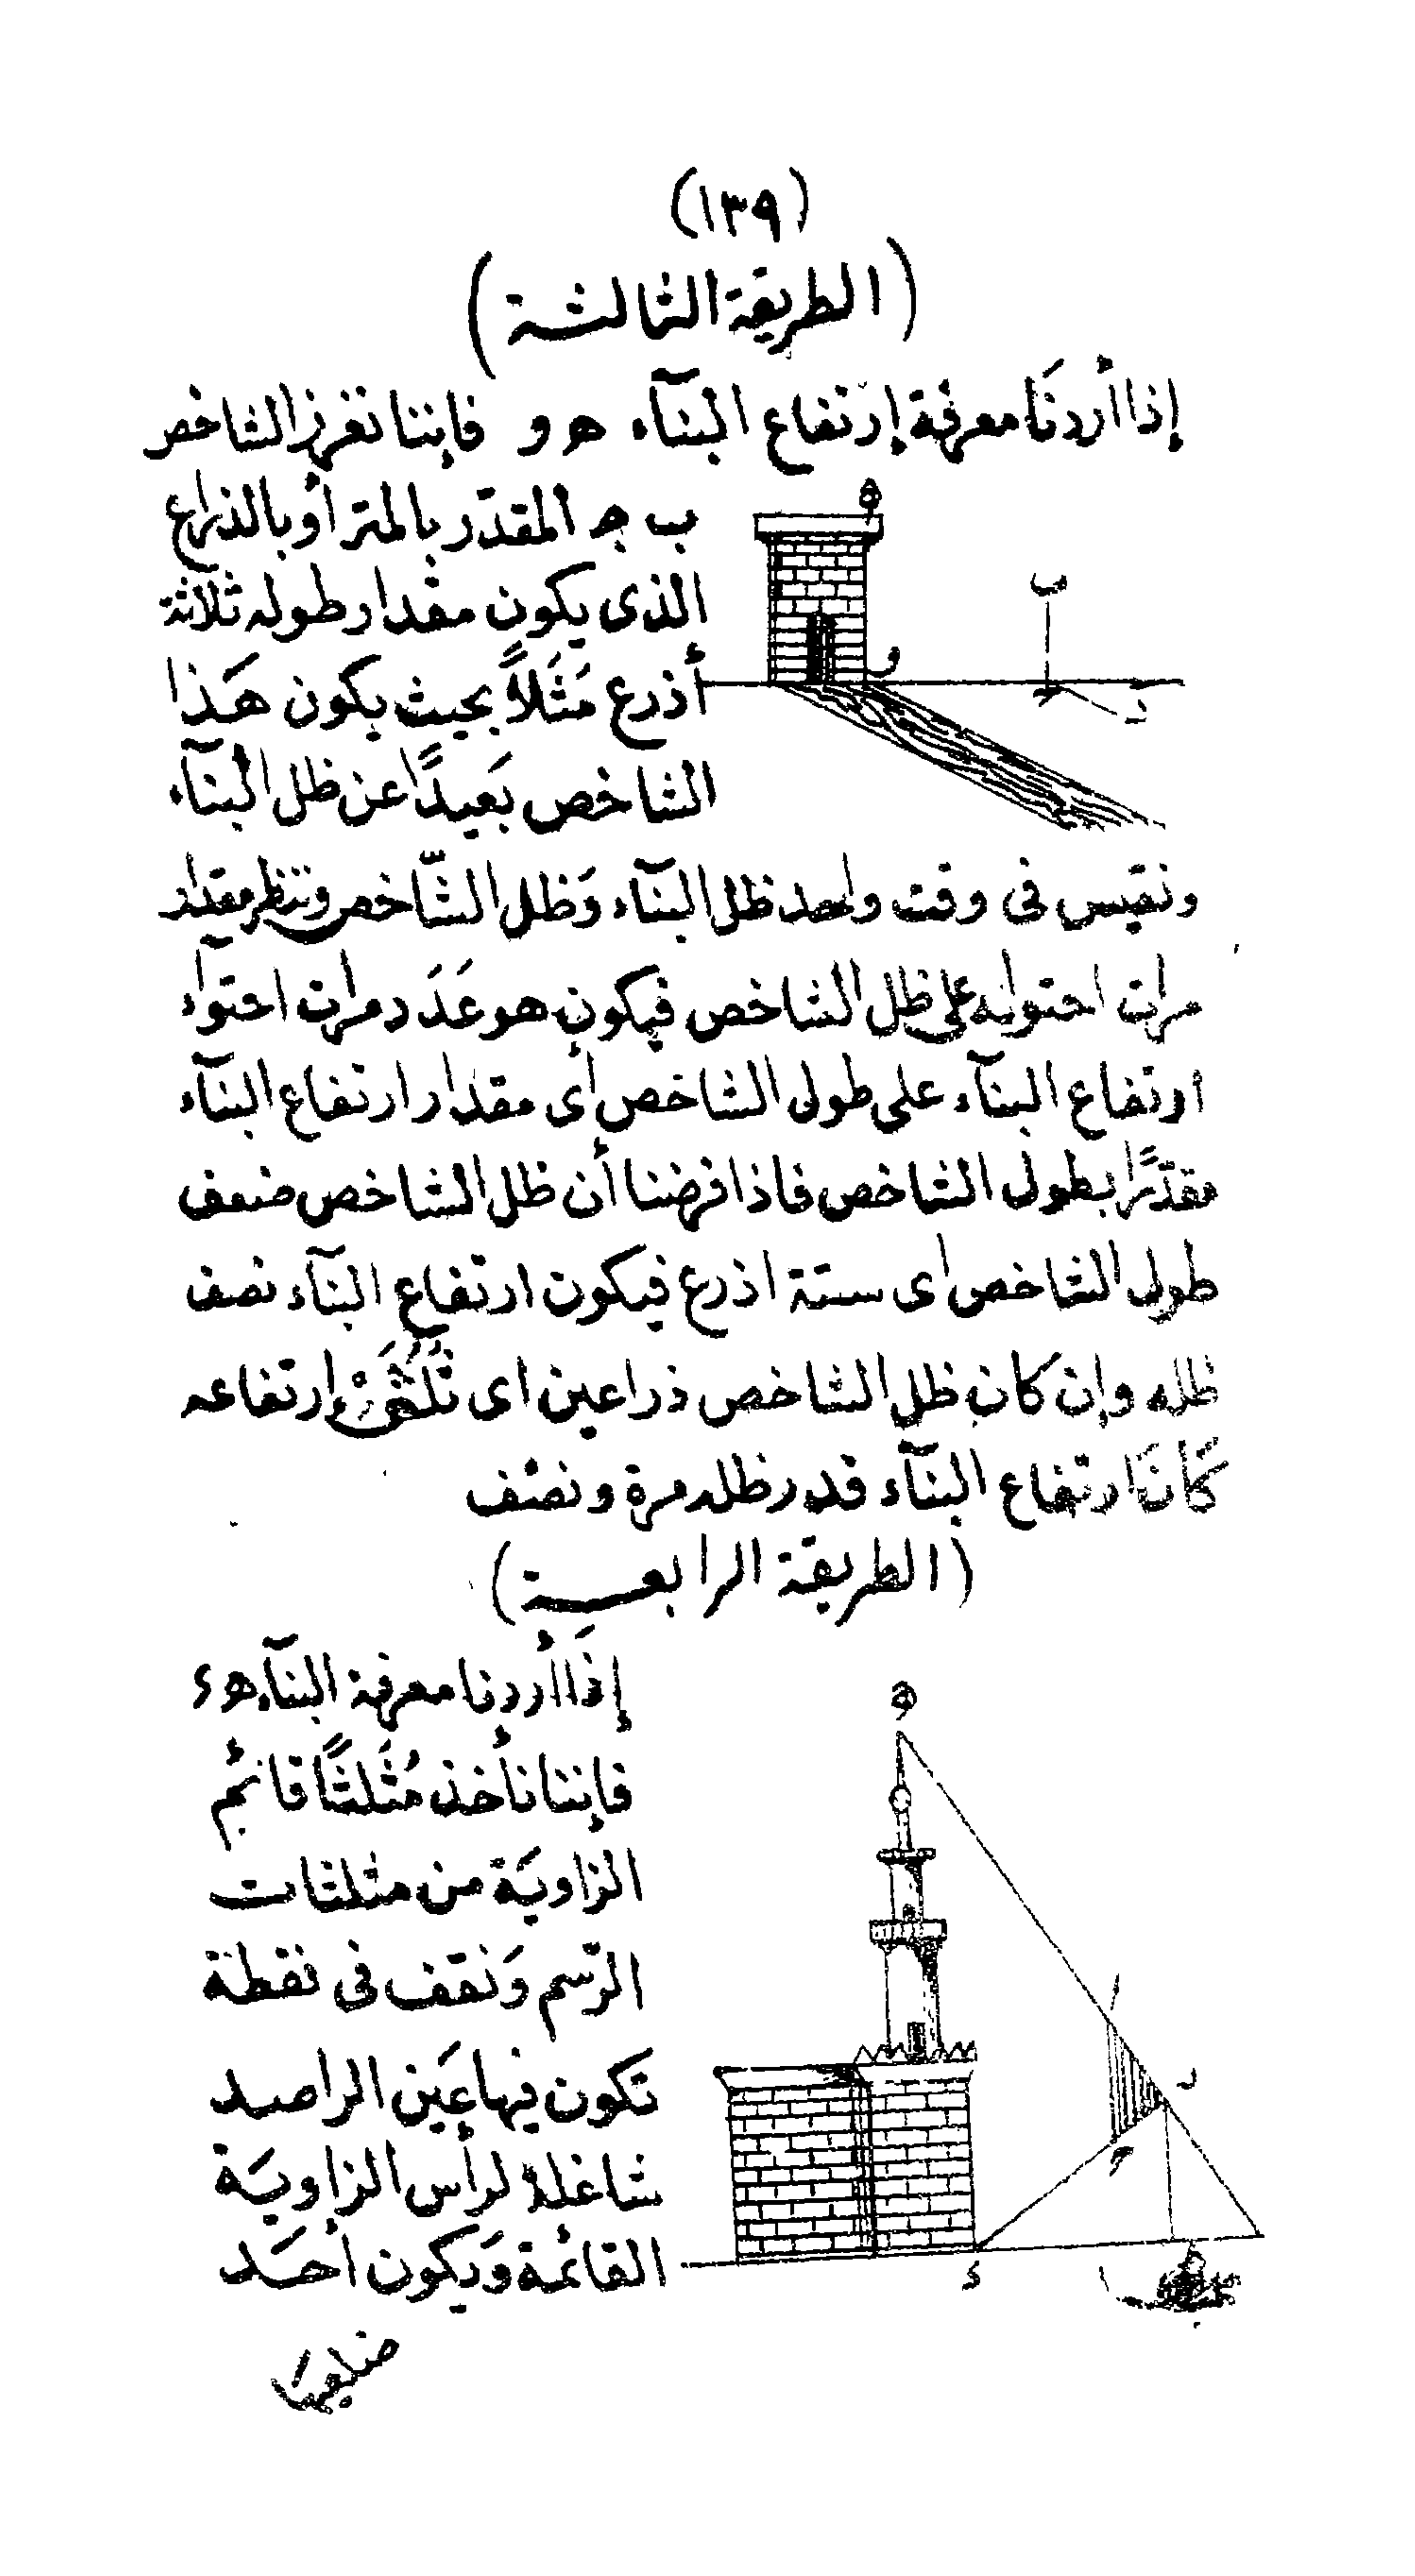 (١٣٩)
(الطريقة الثالثة)
إذا أردنَا معرفة إرتفاع البنآء ه و فإننا نغرز الشاخص
ب ج المقدّر بالمتر أو بالذراع
الذى يكون مقدار طوله ثلاثة
أذرع مَثَلاً بحيث يكون هَذا
الشاخص بَعيدًا عن ظل البنآء
ونقيس فى وقت واحد ظل البنآء وَظل الشّاخص وننظر مقدار
مرات احتوائه على ظل الشاخص فيكون هو عَدَد مرات احتوآء
ارتفاع البنآء على طول الشاخص أى مقدار ارتفاع البنآء
مقدّرًا بطول الشاخص فاذا فرضنا أن ظل الشاخص ضعف
طول الشاخص اى ستة اذرع فيكون ارتفاع البنآء نصف
ظله وإن كان ظل الشاخص ذراعين اى ثُلُثَىْ إرتفاعه
كَانَ ارتفاع البنآء قدر ظله مرة ونصف
(الطريقة الرابعة)
إذَا أردنا معرفة البنآء ه ء
فإننا نأخذ مُثَلثًا قائم
الزاويَة من مثلثات
الرّسم وَنقف فى نقطة
تكون فيها عَين الراصد
شاغلة لرأس الزاويَة
القائمة وَيكون أحَد
ضلعيها
ه
ب
و
ج
ه
ا
ر
ء